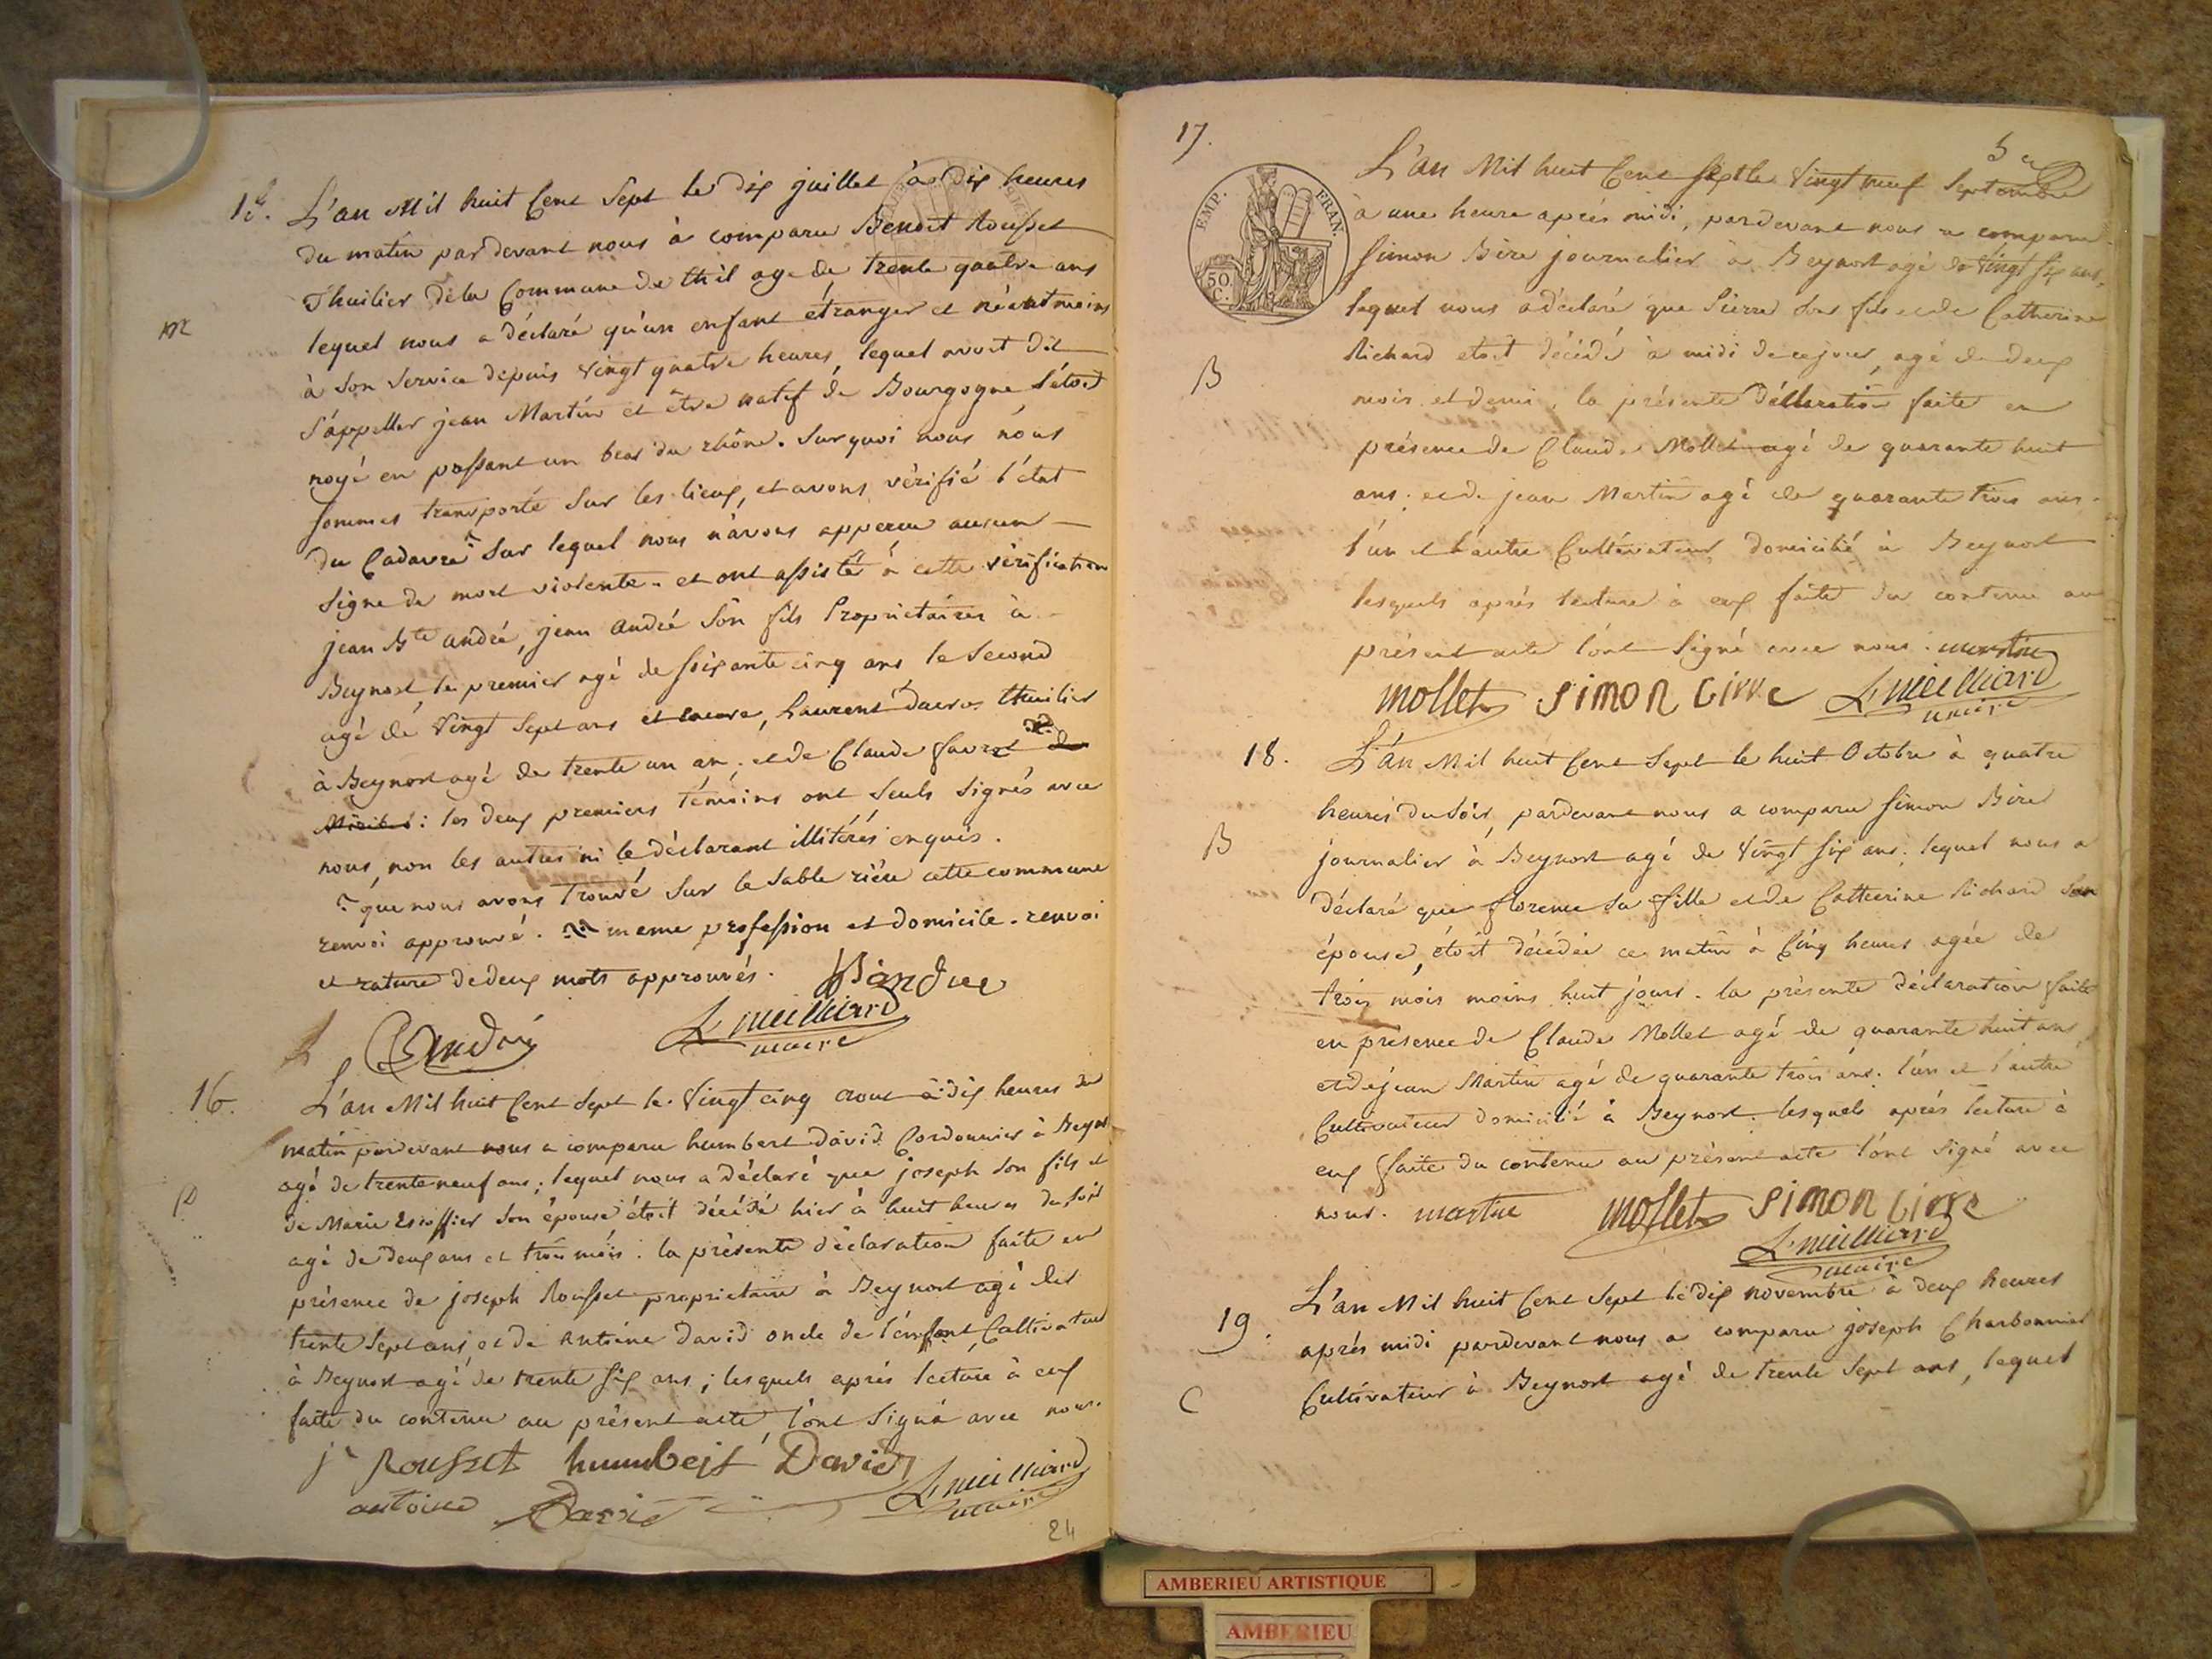 15.
L'an Mil huit Cent Sept le dix juillet à dix heures
du matin pardevant nous à comparu Benoit Rousset
Thuilier dela Commune de thil age de trente quatre ans
m
lequel nous a déclaré qu'un enfant étranger et néantmoins
à Son Service depuis vingt quatre heures, lequel avoit dit
S'appeller jean Martin et être natif de Bourgogne S'étoit
noyé en passant un bras du rhône. Sur quoi nous nous
sommes transporté Sur les lieux, et avons vérifié l'état
du Cadavre Sur lequel nous n'avons apperçu aucun
Signe de mort violente. et ont assisté à cette vérification
jean Bte andré, jean andré Son fils Propriétaires à
Beynost, le premier agé de soixante cinq ans le Second
agé de vingt Sept ans et encore, Laurent thuilier
à Beynost agé de trente un an, et de Claude favret
: les deux premiers témoins ont Seuls Signés avec
nous, non les autres ni le déclarant illitérés enquis.
que nous avons trouvé Sur le Sable rière cette commune
renvoi approuvé. meme profession et domicile. renvoi
et rature de deux mots approuvés. JB andre
andré L. Meilliard
maire
16.
L'an Mil huit Cent Sept le Vingt cinq aout à dix heures du
matin pardevant nous a comparu humbert david Cordonnier à Beynost
agé de trente neuf ans; lequel nous a déclaré que joseph Son fils et
D
de Marie Escoffier Son épouse étoit décédé hier à huit heures du Soir
agé de deux ans et trois mois. la présente déclaration faite en
présence de joseph Rousset propriétaire à Beynost agé de
trente Sept ans et de Antoine David oncle de l'enfant Cultivateur
à Beynost agé de trente six ans; lesquels après lecture à eux
faite du contenu au présent acte, l'ont Signé avec nous.
jh Rousset humbert David
antoine David L. Meilliard
maire
24
17.
5e
EMP. FRAN.
50 C.
L'an Mil huit Cent Sept le Vingt neuf Septembre
à une heure après midi, pardevant nous a comparu
Simon Bire journalier à Beynost agé de vingt six ans,
lequel nous a déclaré que Pierre Son fils et de Catherine
Richard etoit décédé à midi de ce jour, agé de deux
B
mois et demi, la présente déclaration faite en
présence de Claude Mollet agé de quarante huit
ans, et de jean Martin agé de quarante trois ans.
l'un et l'autre Cultivateur domicilié à Beynost
lesquels après lecture à eux faite du contenu au
présent acte l'ont Signé avec nous. martin
mollet Simon Birre L. Meilliard
maire
18.
L'an Mil huit Cent Sept le huit Octobre à quatre
heures du Soir, pardevant nous a comparu Simon Bire
B
journalier à Beynost agé de Vingt six ans, lequel nous a
déclaré que florence Sa fille et de Catherine Richard Son
épouse, étoit décédée ce matin à Cinq heures agée de
trois mois moins huit jours. la présente déclaration faite
en présence de Claude Mollet agé de quarante huit ans
et de jean Martin agé de quarante trois ans. l'un et l'autre
Cultivateur domicilié à Beynost. lesquels après lecture à
eux faite du contenu au présent acte l'ont Signé avec
nous. martin mollet Simon Birre
L. Meilliard
maire
19.
L'an Mil huit Cent Sept le dix novembre à deux heures
après midi pardevant nous a comparu joseph Charbonnier
C
Cultivateur à Beynost agé de trente Sept ans, lequel
AMBERIEU ARTISTIQUE
AMBERIEU